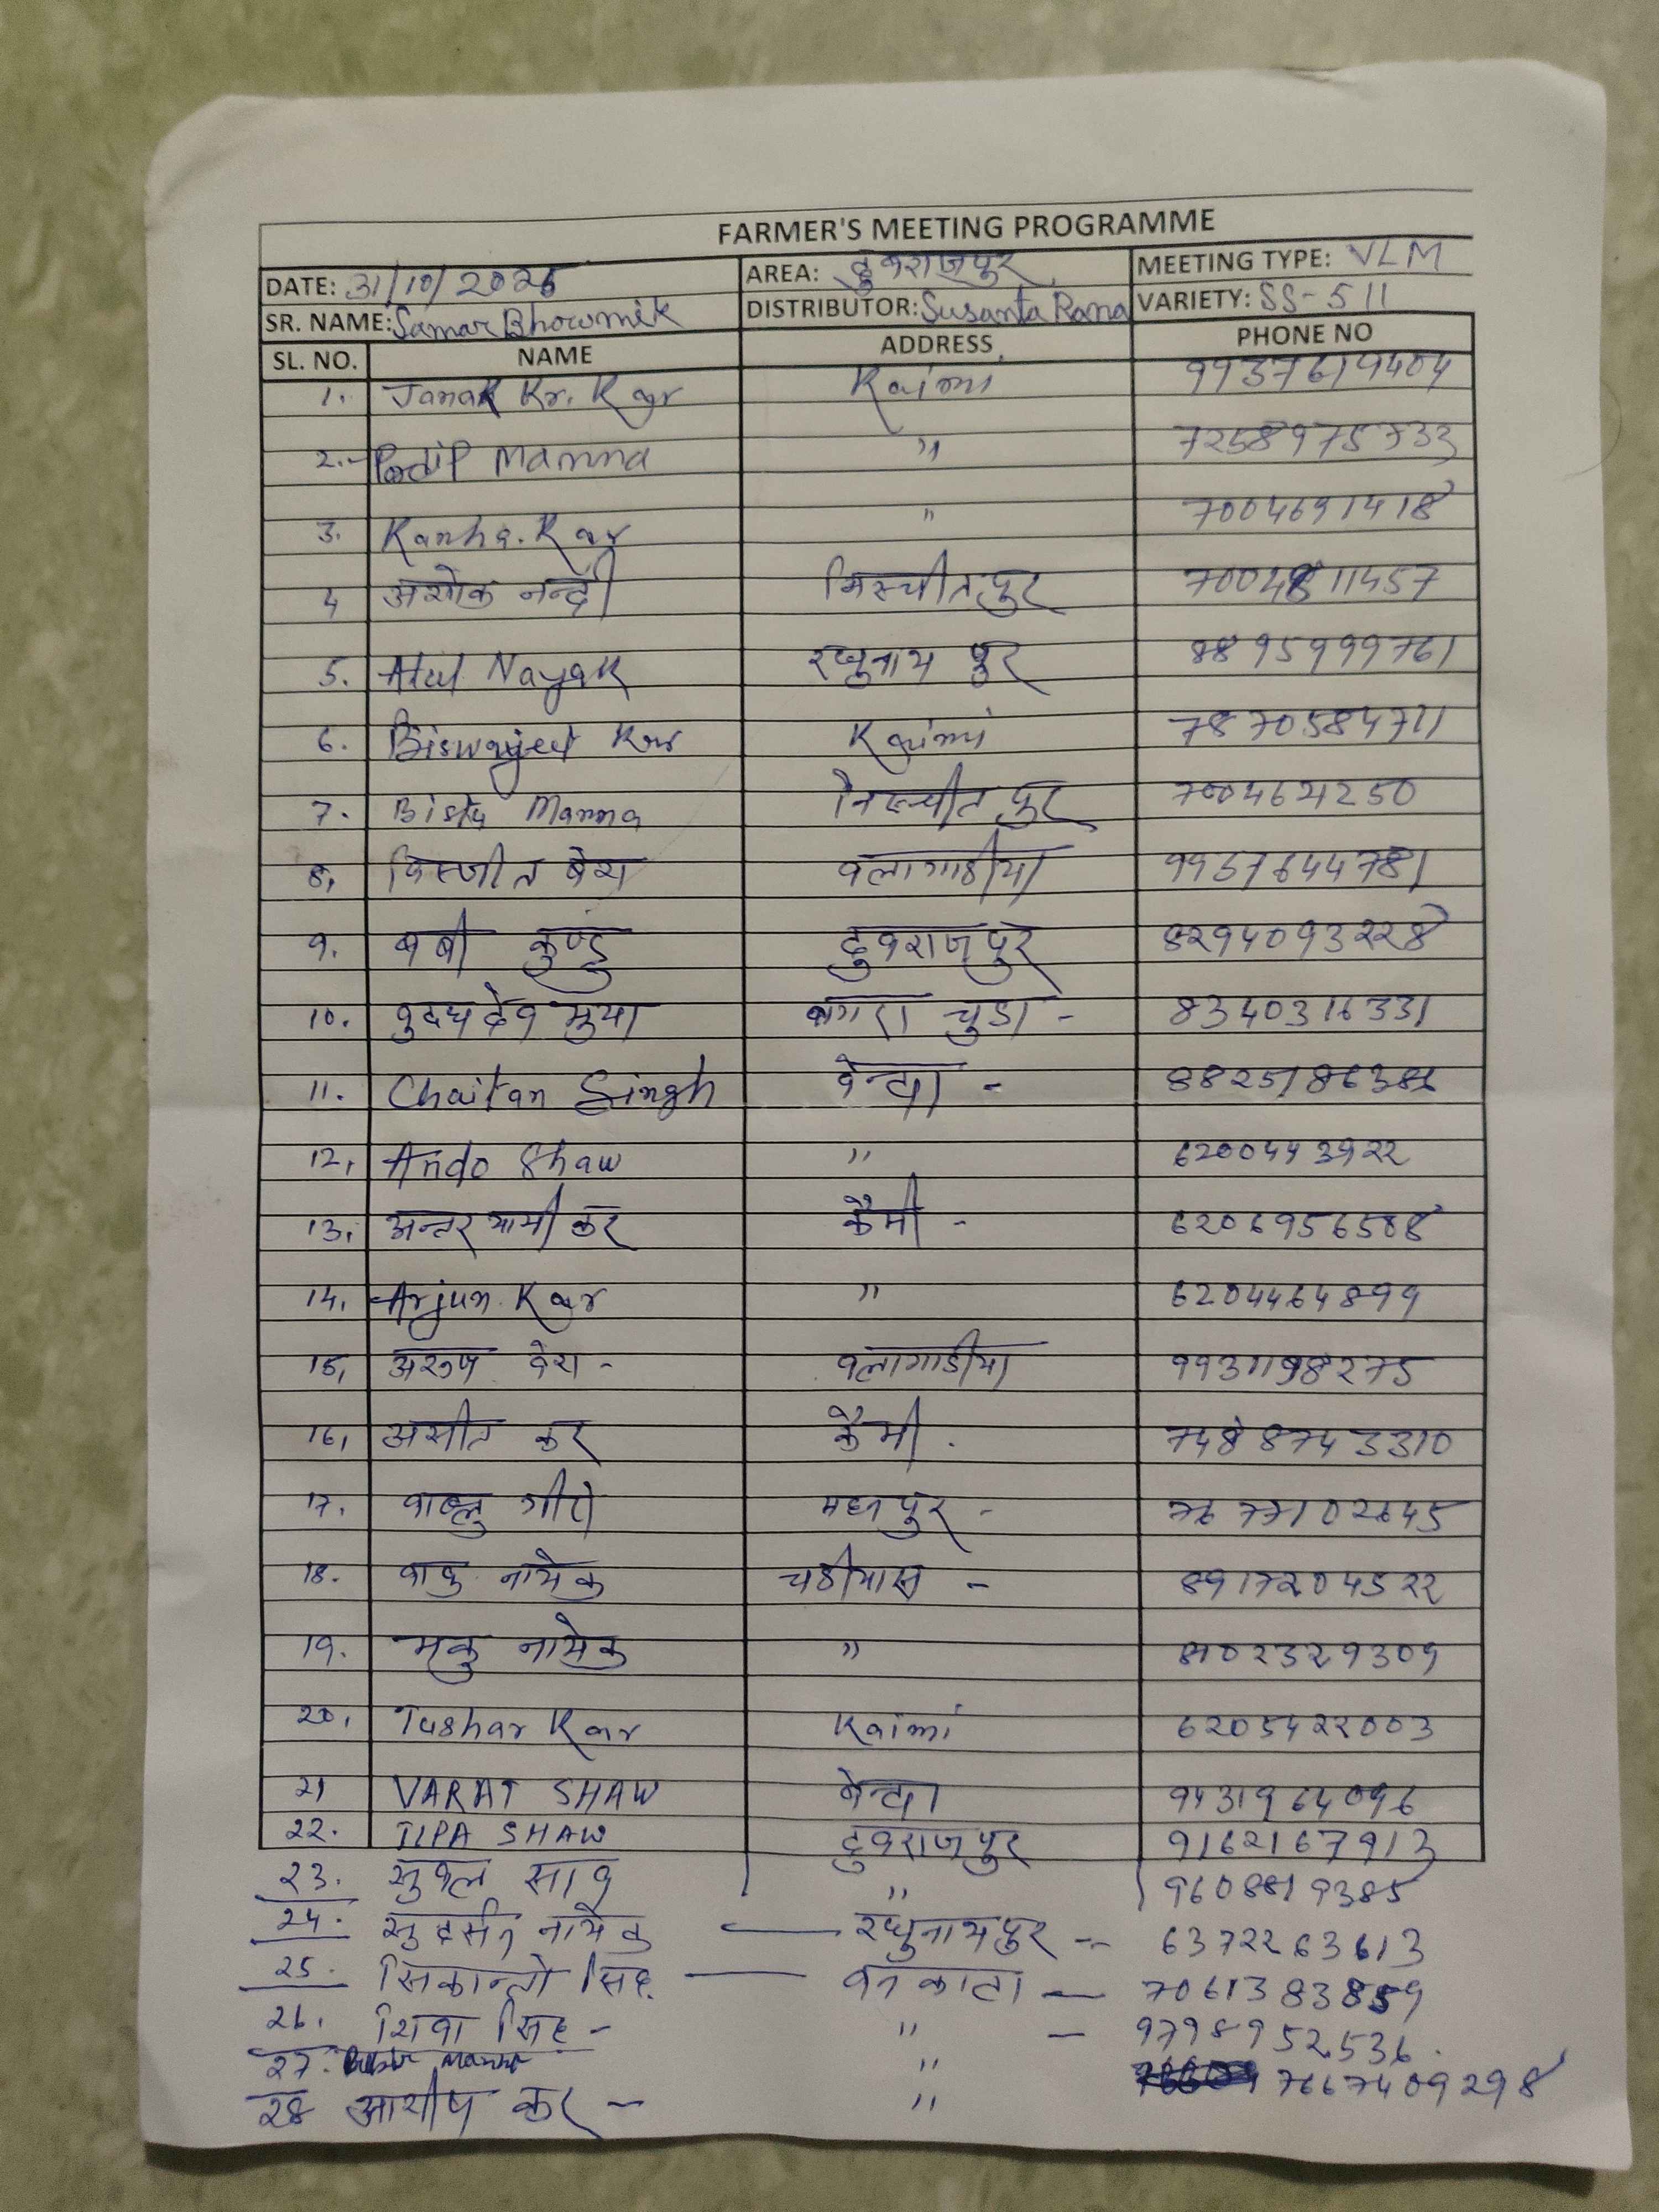 FARMER'S MEETING PROGRAMME
DATE: 31/10/2025 AREA: दुबराजपुर MEETING TYPE: VLM
SR. NAME: Samar Bhowmik DISTRIBUTOR: Susanta Rana VARIETY: SS-511
SL. NO. NAME ADDRESS PHONE NO
1. Janak Kr. Kar Kaimi 9937619404
2. Manna " 7258975733
3. Kanha. Kar " 7004691418
4 अशोक नन्दी निस्चीतपुर 7004811457
5. Atul Nayak रघुनाथ पुर 8895999761
6. Biswajeet Kar Kaimi 7870584711
7. Manna निस्चीत पुर 7004621250
8. बेरा बलागाडीया 9957644781
9. बबी कुण्डु दुबराजपुर 8294093228
10. चुडा - 8340316331
11. Chaitan Singh बेन्दा - 8825186386
12. Ando Shaw " 6200443922
13. अन्तरयामी कर कैमी - 6206956508
14. Arjun. Kar " 6204464899
15. अरुण बेरा - बलागाडीया 9931198275
16. असीत कर कैमी . 7488743310
17. पुर - 7677102645
18. नायेक - 8917204522
19. नायेक " 8102329309
20. Tushar Kar Kaimi 6205422003
21 VARAT SHAW बेन्दा 9431964096
22. TIPA SHAW दुबराजपुर 9162167913
23. सुबल साव " 9608819385
24. सुदर्सन नायेक — रघुनाथपुर -- 6372263613
25. सिकान्तो सिंह — बनकाटा — 7061383859
26. शिबा सिंह - " — 9798952536.
27. Manna "
28 आशीष कर - " 7667409298